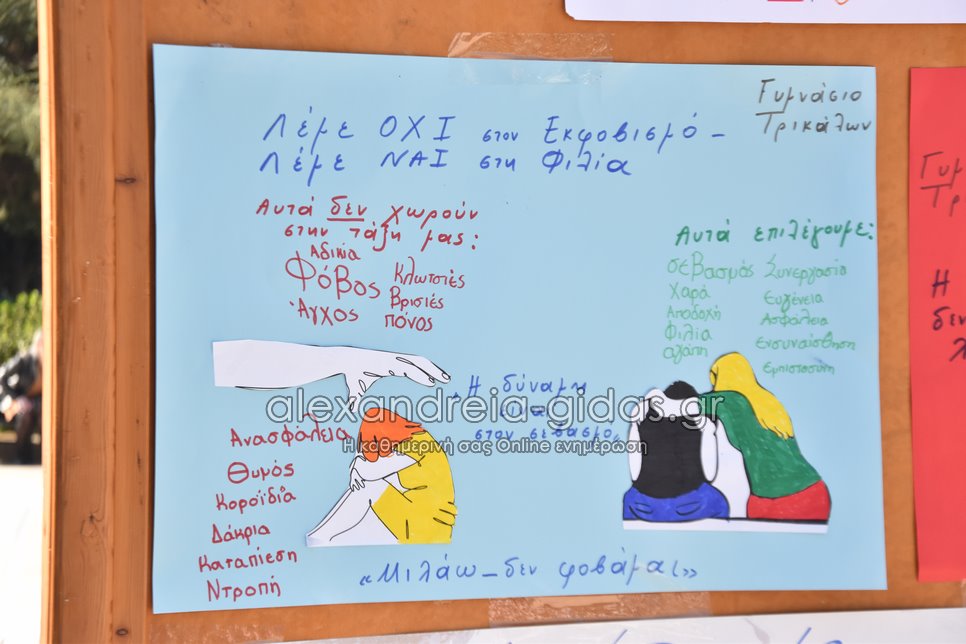 Γυμνάσιο
Τρικάλων
Λέμε ΟΧΙ στον Εκφοβισμό -
Λέμε ΝΑΙ στη Φιλία
Αυτά δεν χωρούν
στην τάξη μας:
Αδικία
Φόβος
Κλωτσιές
Βρισιές
Άγχος
πόνος
Αυτά επιλέγουμε:
σεβασμός
Συνεργασία
Χαρά
Ευγένεια
Αποδοχή
Ασφάλεια
Φιλία
Ενσυναίσθηση
αγάπη
Εμπιστοσύνη
"Η δύναμη
είναι
στον σεβασμό"
alexandreia-gidas.gr
Η καθημερινή σας Online ενημέρωση
Ανασφάλεια
Θυμός
Κοροϊδία
Δάκρια
Καταπίεση
Ντροπή
«Μιλάω - δεν φοβάμαι»
Γυμ
Τρ
Η
δεν